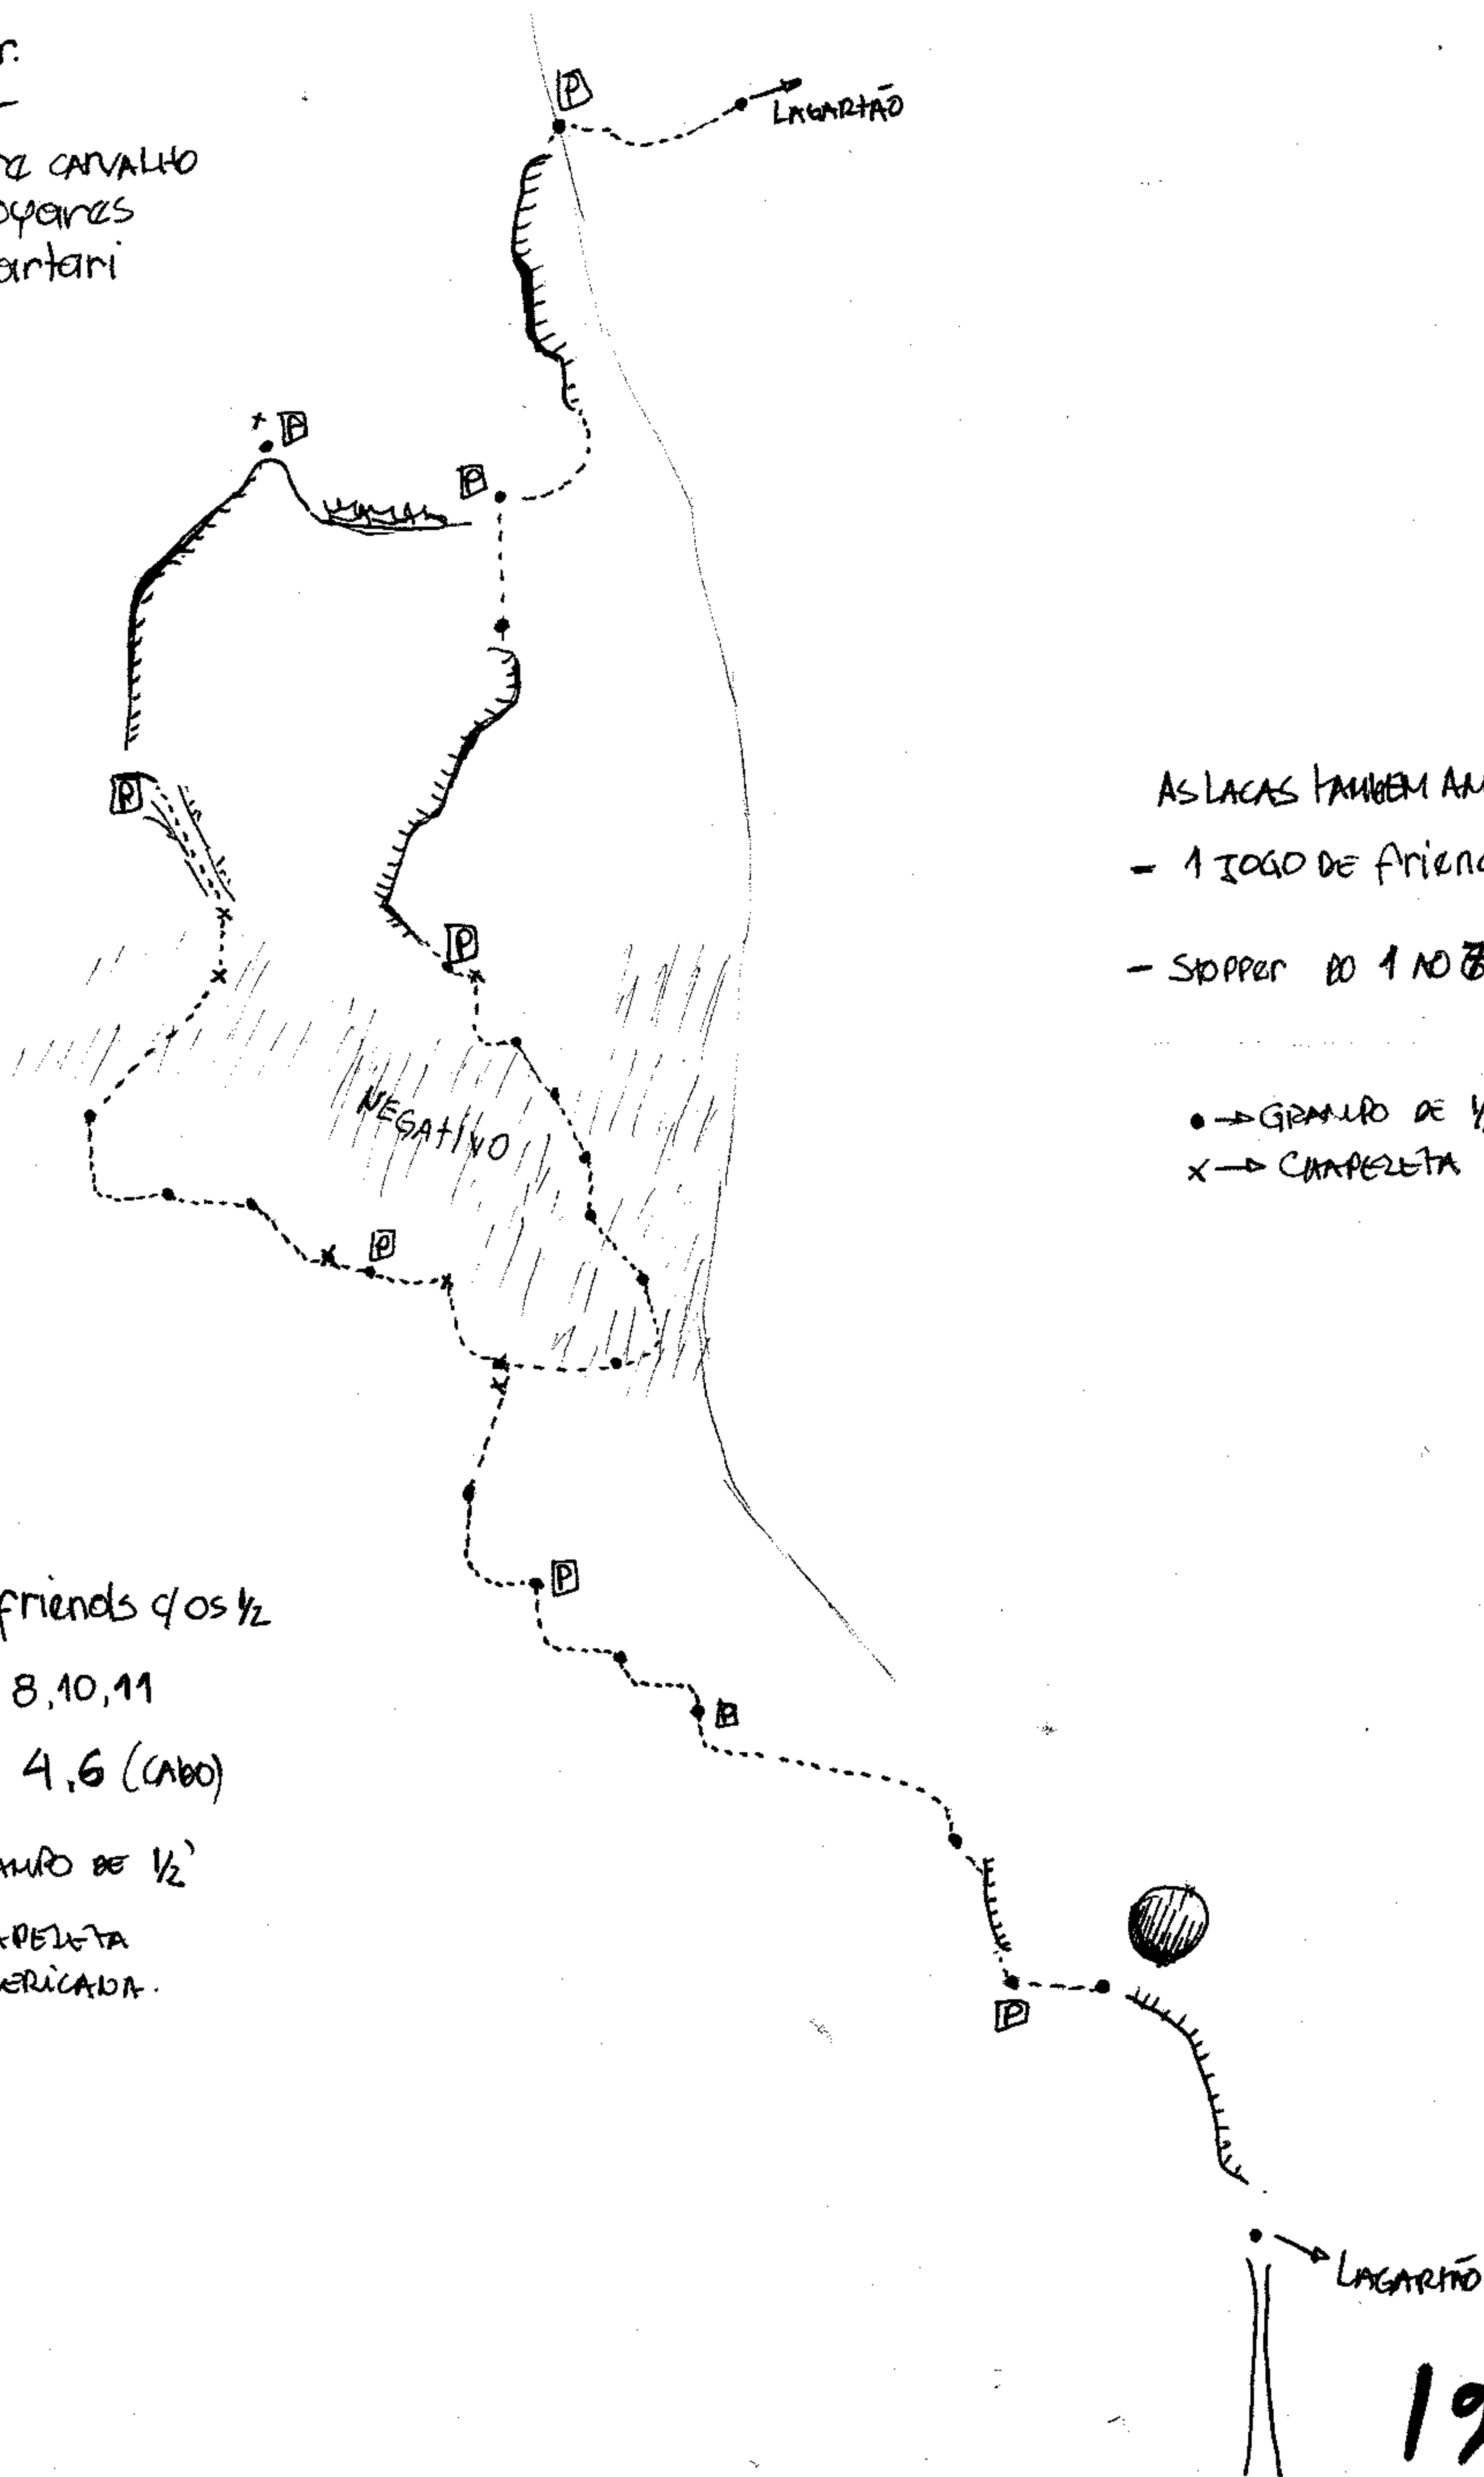 r.
CARVALHO
oyares
artari
P
LAGARTÃO
P
P
P
P
NEGATIVO
P
P
P
P
LAGARTÃO
AS LACAS TAMBEM AM
- 1 JOGO DE friend
- Stopper DO 1 AO
● → GRAMPO DE 1/
x → CHAPELETA
friends c/os 1/2
8,10,11
4,6 (CABO)
AMPO DE 1/2'
APELETA
ERICANA.
19